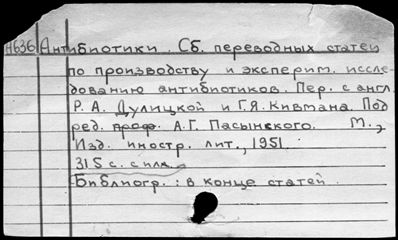 Н636 Антибиотики. Сб. переводных статей
по производству и эксперим. иссле-
дованию антибиотиков. Пер. с англ.
Р. А. Дулицкой и Г.Я. Кивмана. Под
ред. проф. А.Г. Пасынского. М.,
Изд. иностр. лит., 1951.
315 с. с илл.
Библиогр.: в конце статей.